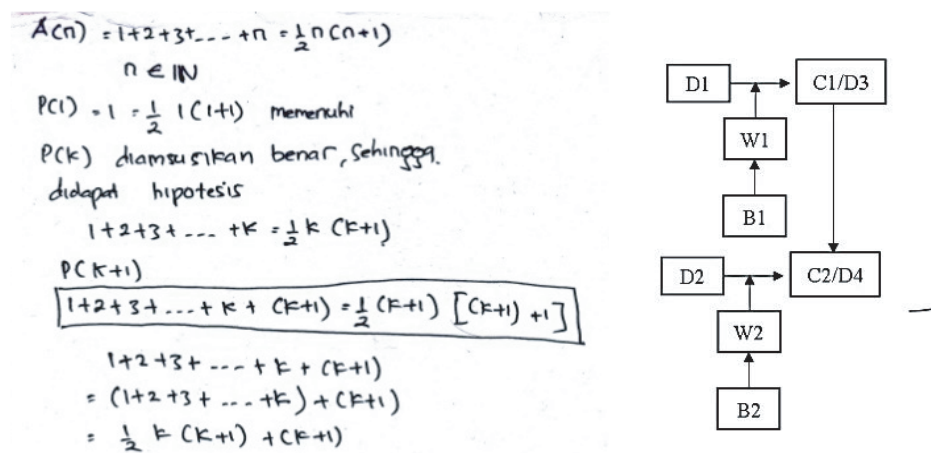 A(n) = 1+2+3+... +n = 1/2 n(n+1)
n ∈ IN
P(1) = 1 = 1/2 1(1+1) memenuhi
P(k) diamsusikan benar, Sehingga.
didapat hipotesis
1+2+3+... +k = 1/2 k (k+1)
P(k+1)
1+2+3+...+k+ (k+1) = 1/2 (k+1) [(k+1) +1]
1+2+3+...+k+(k+1)
= (1+2+3+...+k)+(k+1)
= 1/2 k (k+1) +(k+1)
D1
C1/D3
W1
B1
D2
C2/D4
W2
B2